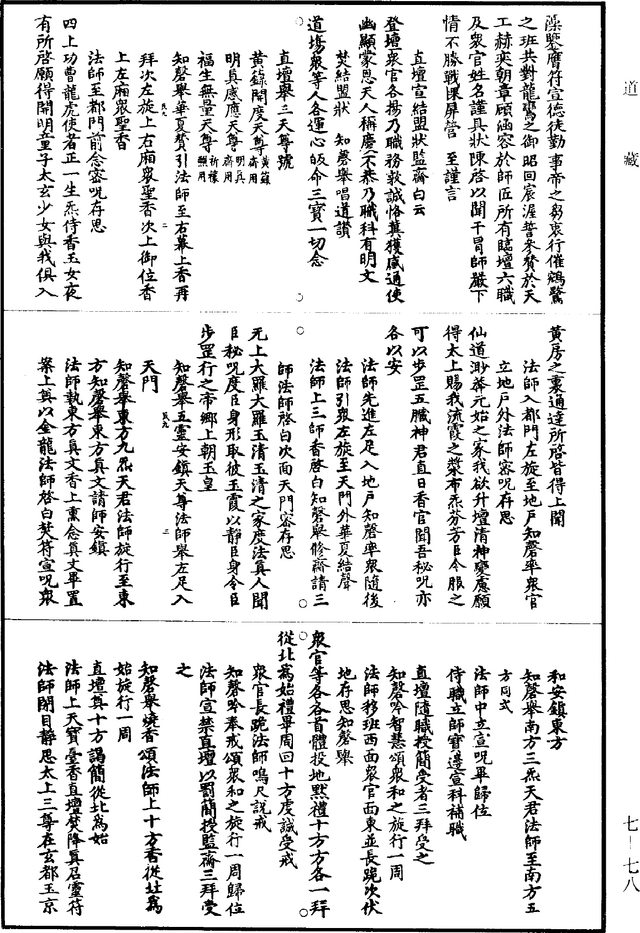 道藏
藻鑒膺符宣德徒勤 事帝之芻衷行催鵷鷺
之班共對龍鸞之御昭回宸渥誓參贊於天
工赫奕朝章顧涵容於師匠所有臨壇六職
及衆官姓名謹具狀陳啓以聞干冒師嚴下
情不勝戰慄屏營 至謹言
直壇宣結盟狀監齋白云
登壇衆官各揚乃職務敦誠恪冀獲感通使
幽顯蒙恩天人稱慶不恭乃職科有明文
焚結盟狀 知磬舉唱道讚
道場衆等人各運心皈命三寶一切念
直壇舉三天尊號
黃籙開度天尊黃籙齋用
明真感應天尊明真齋用
福生無量天尊祈禳縣用
知磬舉華夏贊引法師至右幕上香再
拜次左旋上右廂衆聖香次上御位香
上左廂衆聖香
法師至都門前念密呪存思
四上功曹龍虎使者正一生炁侍香玉女夜
有所啓願得開明童子太玄少女與我俱入
黃房之裏通達所啓皆得上聞
法師入都門左旋至地戶知磬率衆官
立地戶外法師密呪存思
仙道渺莽元始之家我欲升壇清神慶慮願
得太上賜我流霞之漿布炁芬芳臣今服之
可以步罡五臟神君直日香官聞吾秘呪亦
各以安
法師先進左足入地戶知磬率衆隨後
法師引衆左旋至天門外華夏結聲
法師上三師香啓白知磬舉修齋請三
師法師啓白次面天門密存思
元上大羅大羅玉清玉清之家度法真人聞
臣秘呪度臣身形取彼玉霞以靜臣身令臣
步罡行之帝鄉上朝玉皇
知磬舉五靈安鎮天尊法師舉左足入
天門
知磬舉東方九炁天君法師旋行至東
方知磬舉東方真文請師安鎮
法師執東方真文香上熏念真文畢置
案上奠以金龍法師啓白焚符宣呪衆
和安鎮東方
知磬舉南方三炁天君法師至南方五
方同式
法師中立宣呪畢歸位
侍職立師寶邊宣科補職
直壇隨職授簡受者三拜受之
知磬吟智慧頌衆和之旋行一周
法師移班西面衆官面東並長跪次伏
地存思知磬舉
衆官等各各首體投地默禮十方方各一拜
從北爲始禮畢周回十方虔誠受戒
衆官長跪法師鳴尺說戒
知磬吟奉戒頌衆和之旋行一周歸位
法師宣禁直壇以罰簡授監齋三拜受
之
知磬舉燒香頌法師上十方香從北爲
始旋行一周
直壇奠十方謁簡從北爲始
法師上天寶臺香直壇焚降真召靈符
法師閉目靜思太上三尊在玄都玉京
七—七八